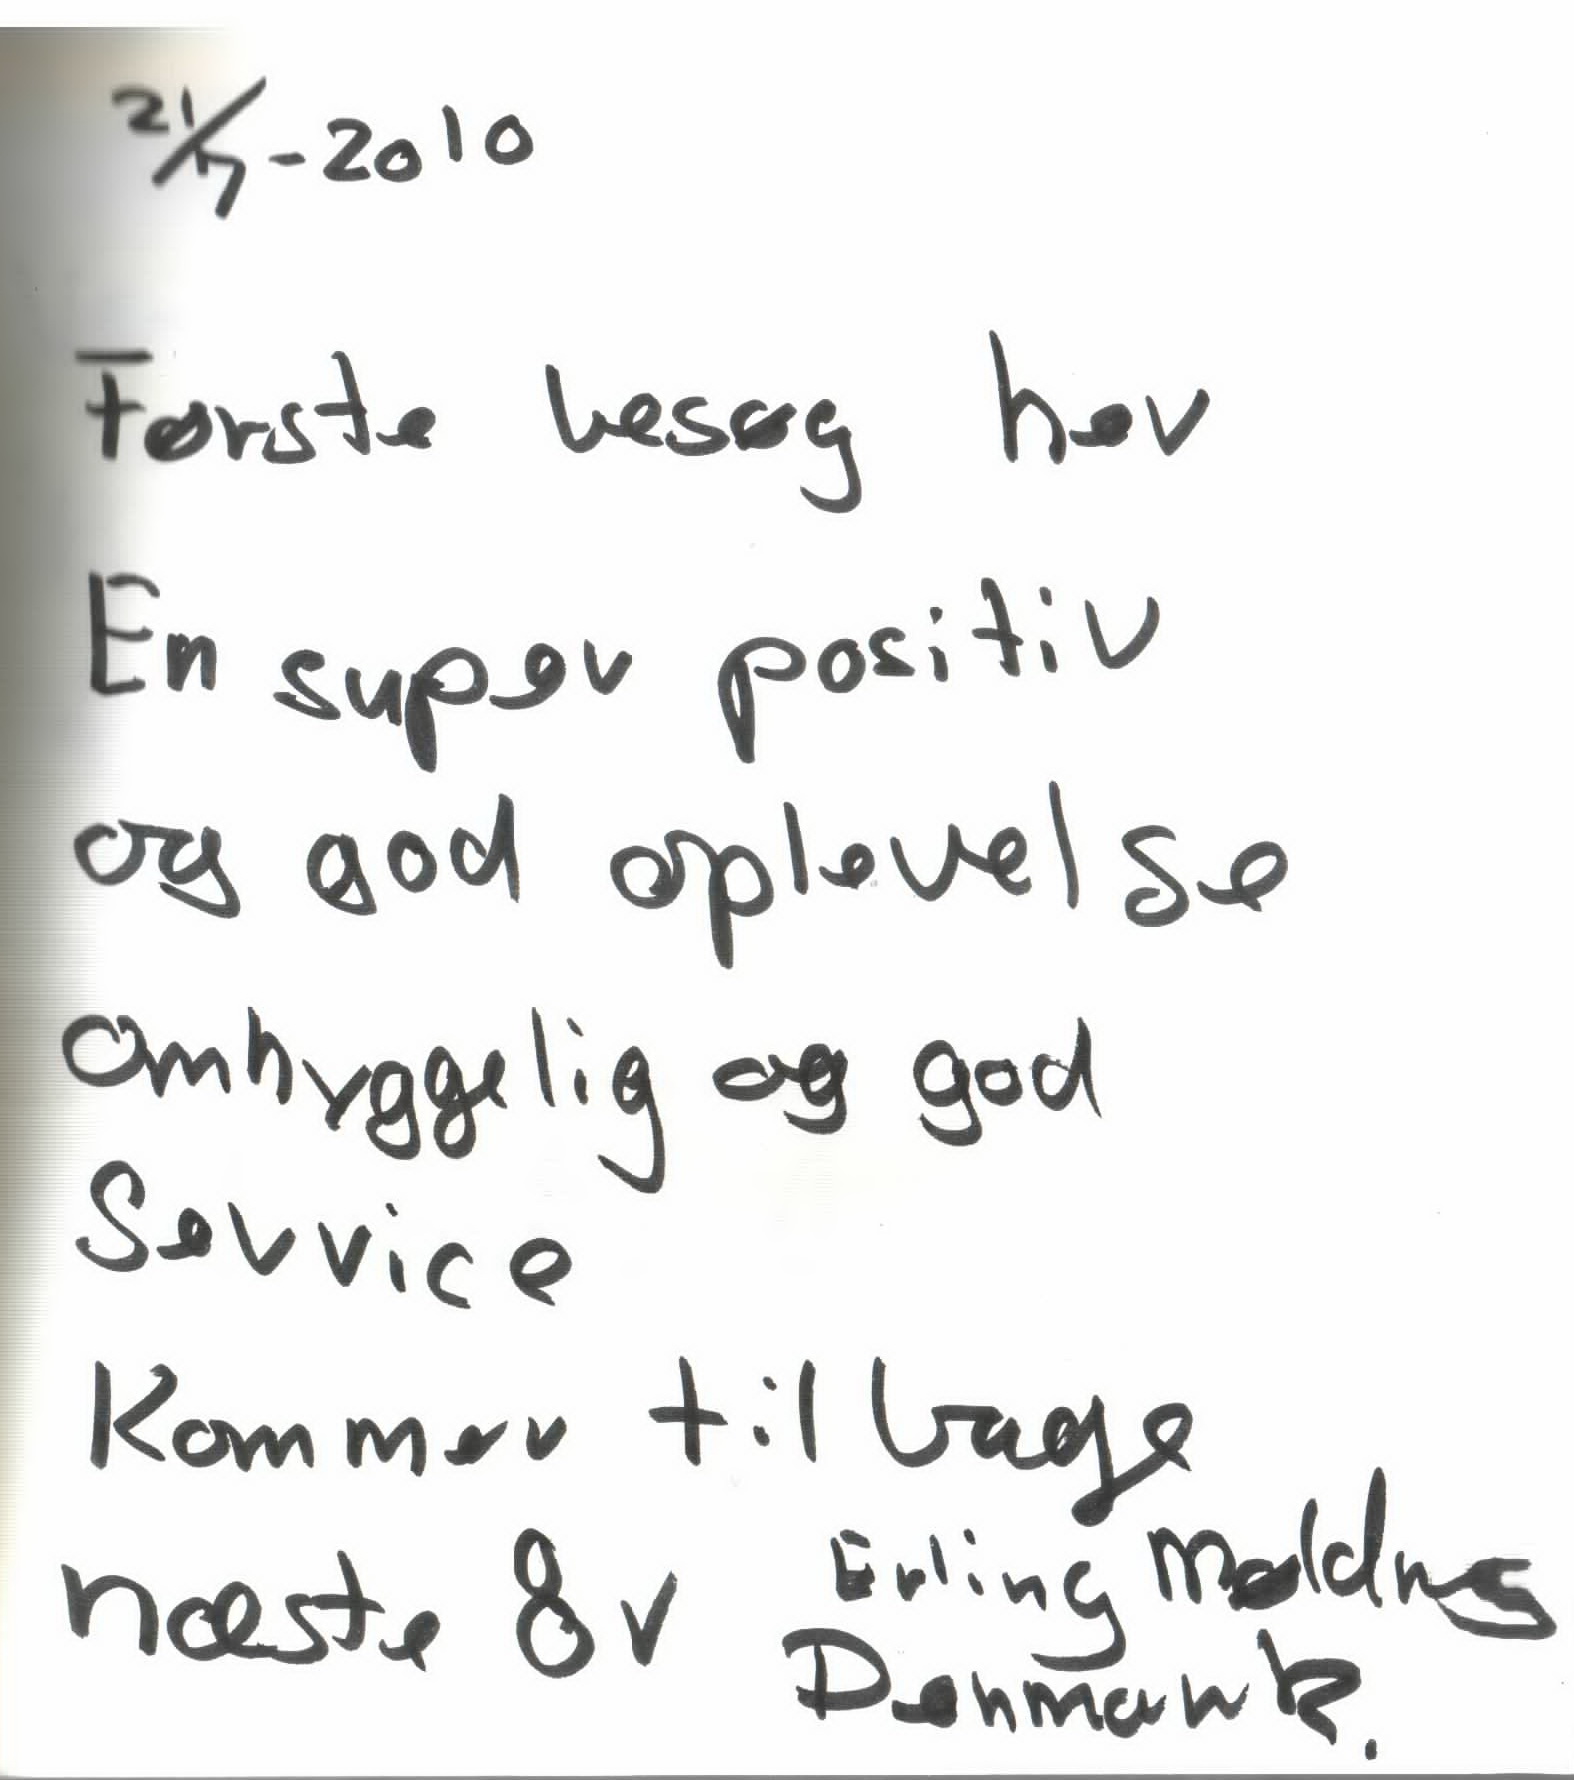 21/7-2010
Første besøg her
En super positiv
og god oplevelse
omhyggelig og god
Service
Kommer tilbage
næste år
Erling
Denmark.